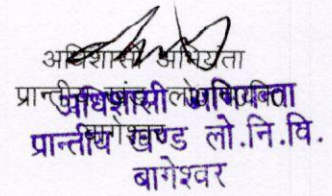 अधिशासी अभियंता
प्रान्तीय खण्ड लो०नि०वि०
बागेश्वर
अधिशासी अभियन्ता
प्रान्तीय खण्ड लो.नि.वि.
बागेश्वर